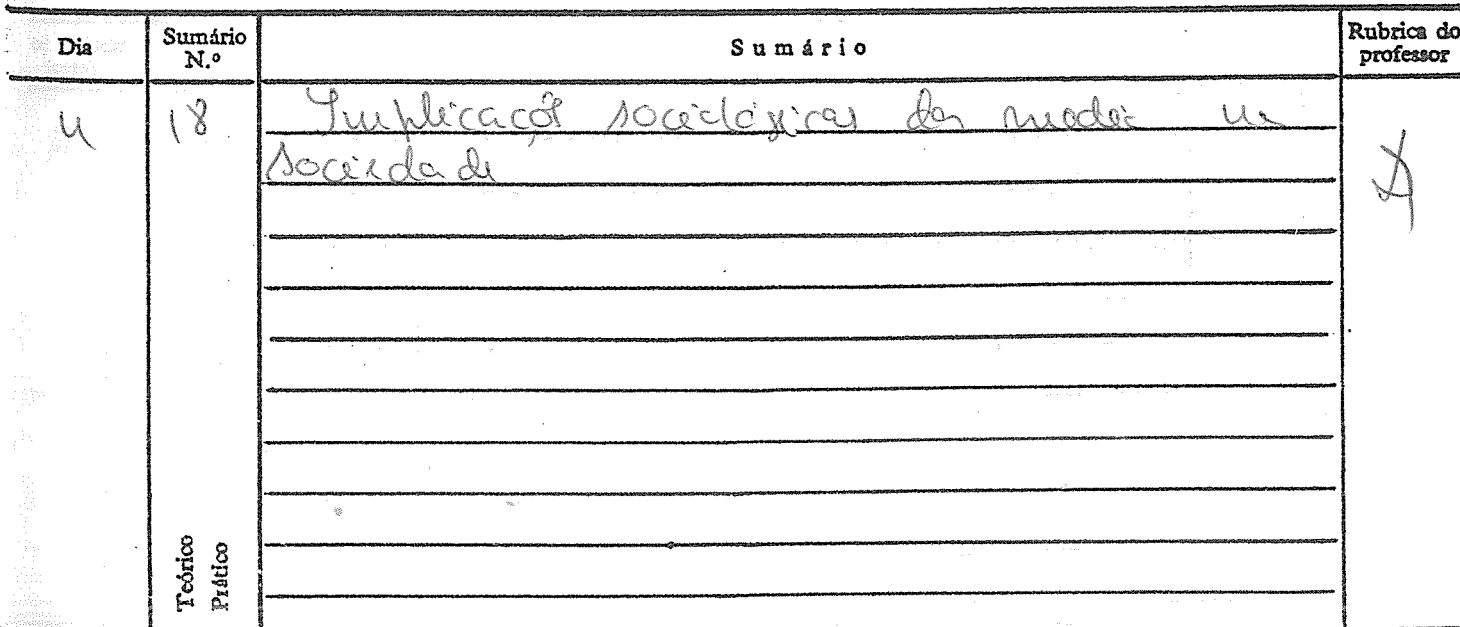 Dia
Sumário
N.º
Sumário
Rubrica do
professor
4 18 Implicações sociológicas dos media na
sociedade
Teórico
Prático